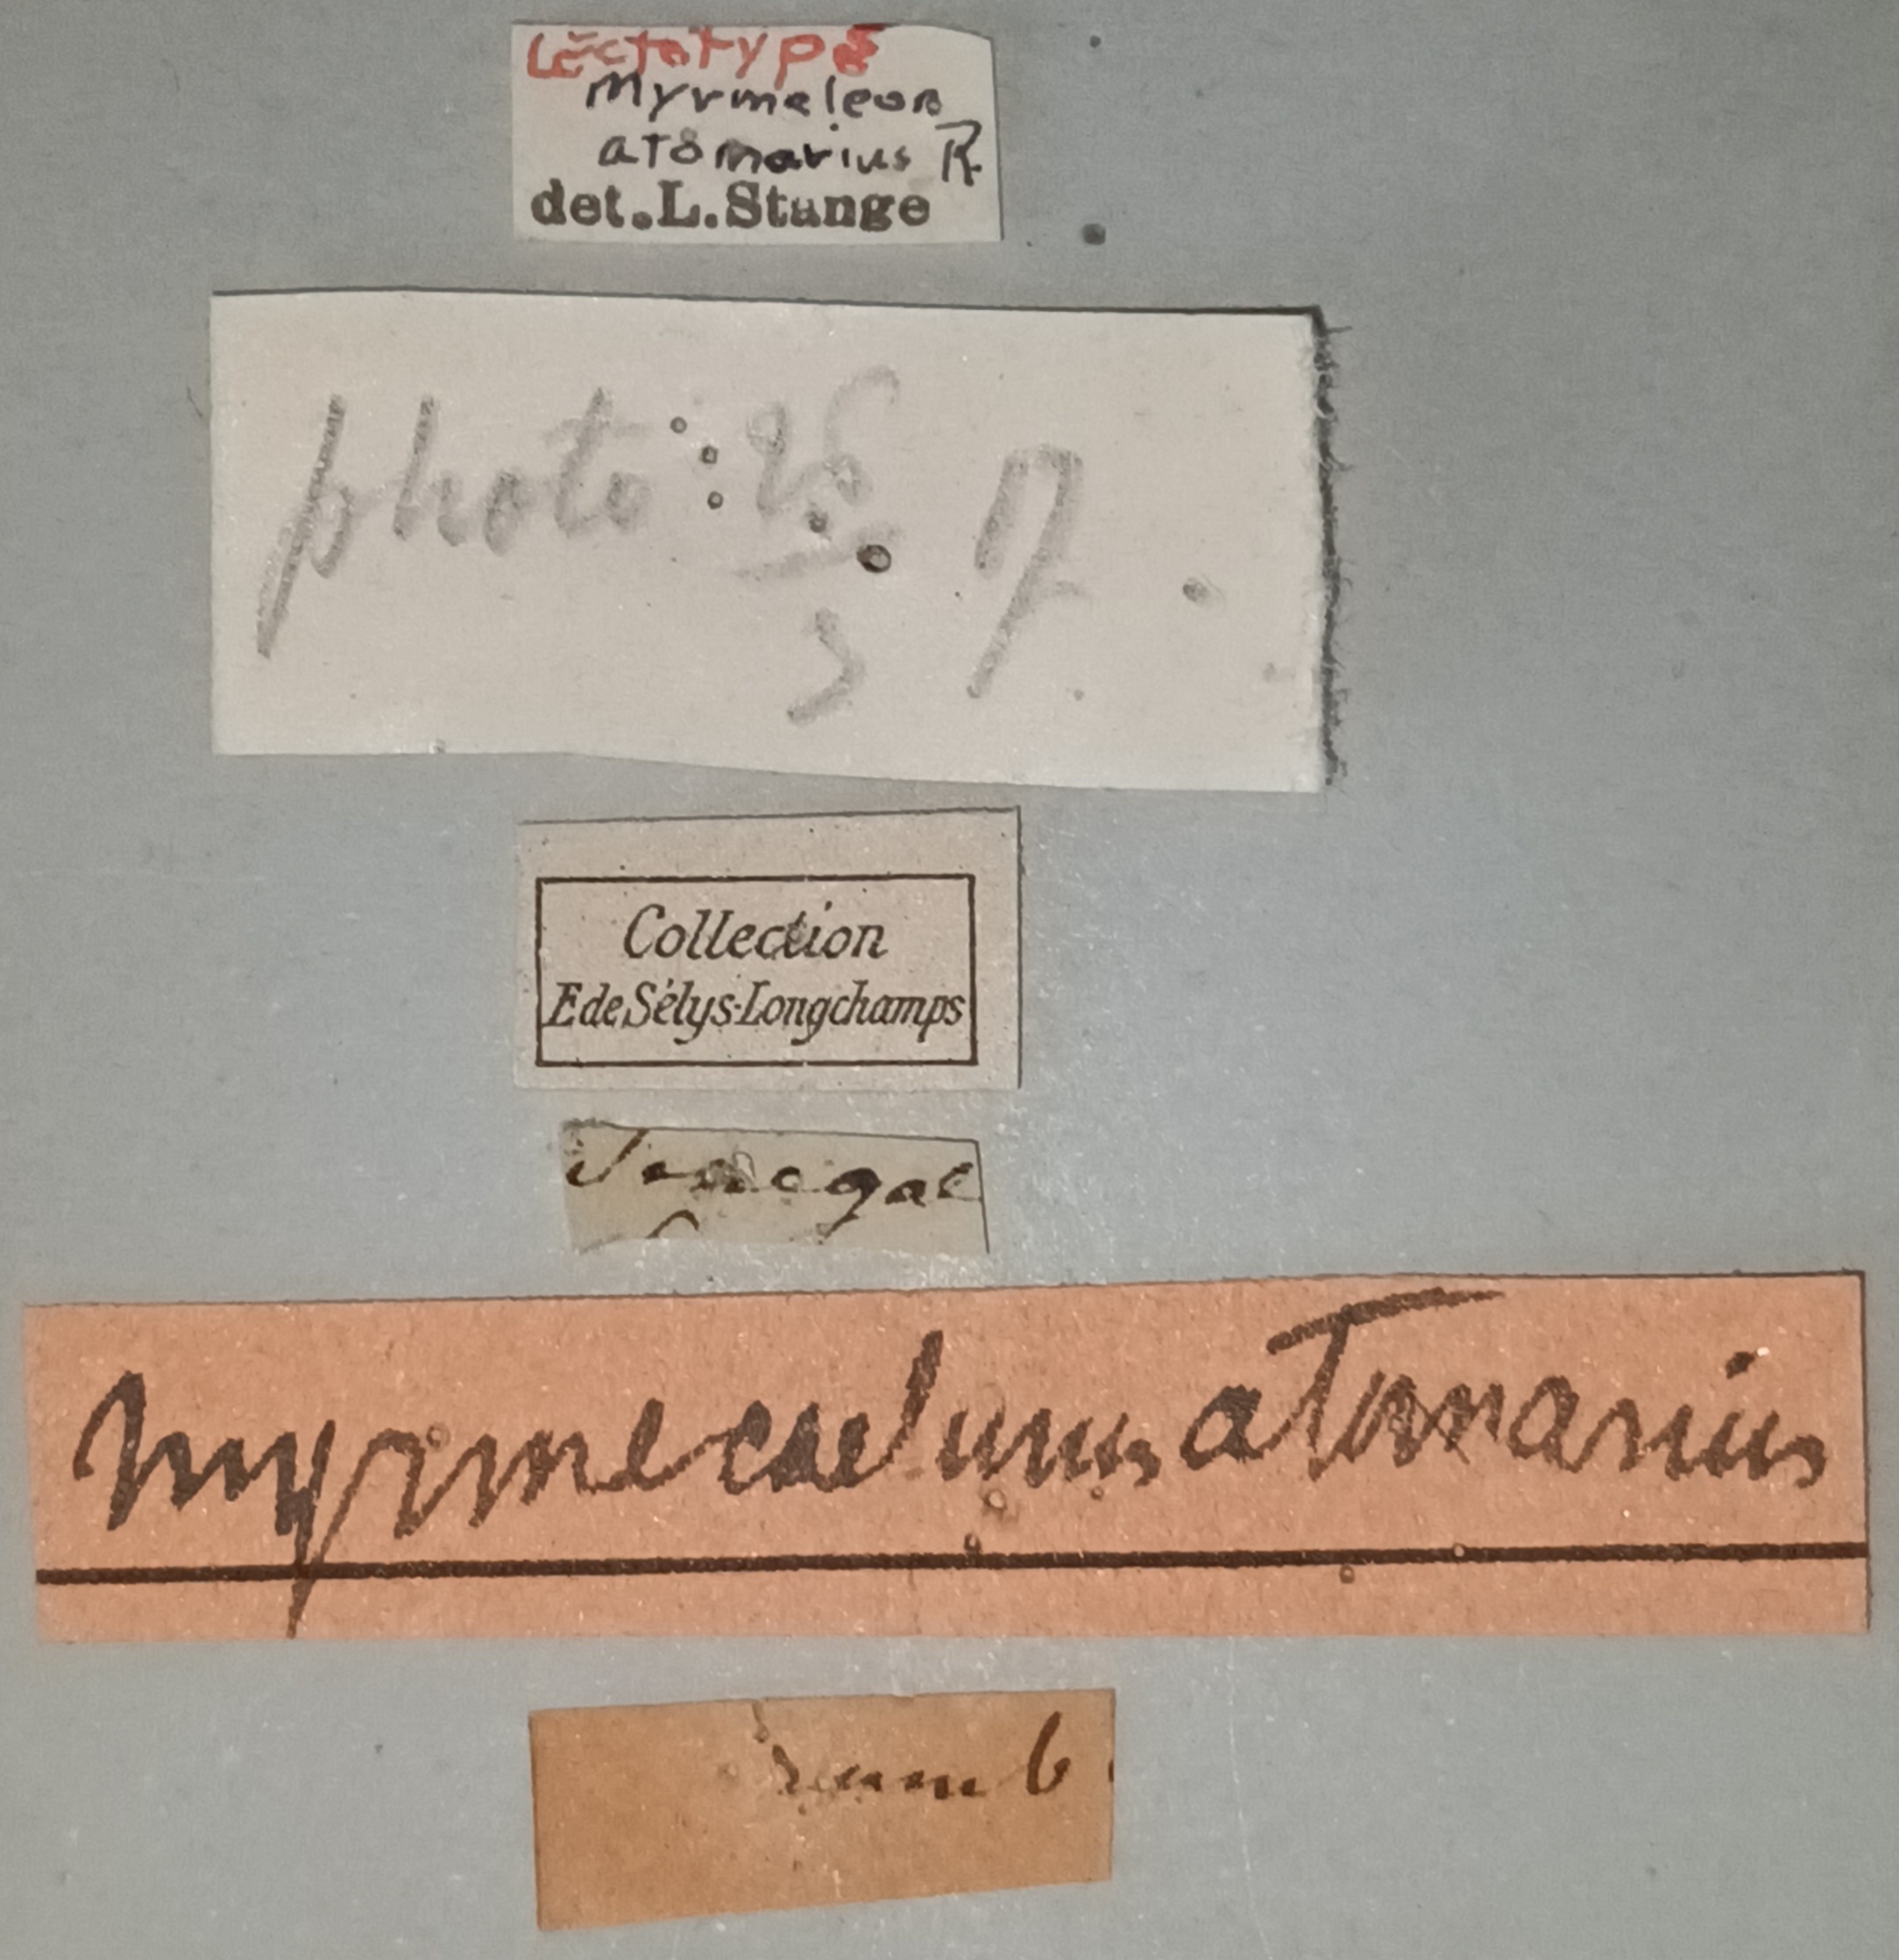 Lectotype
Myrmeleon
atomarius R.
det. L. Stange
photo:
Collection
E de Sélys-Longchamps
Senegal
Myrmecaelurus atomarius
Ramb.